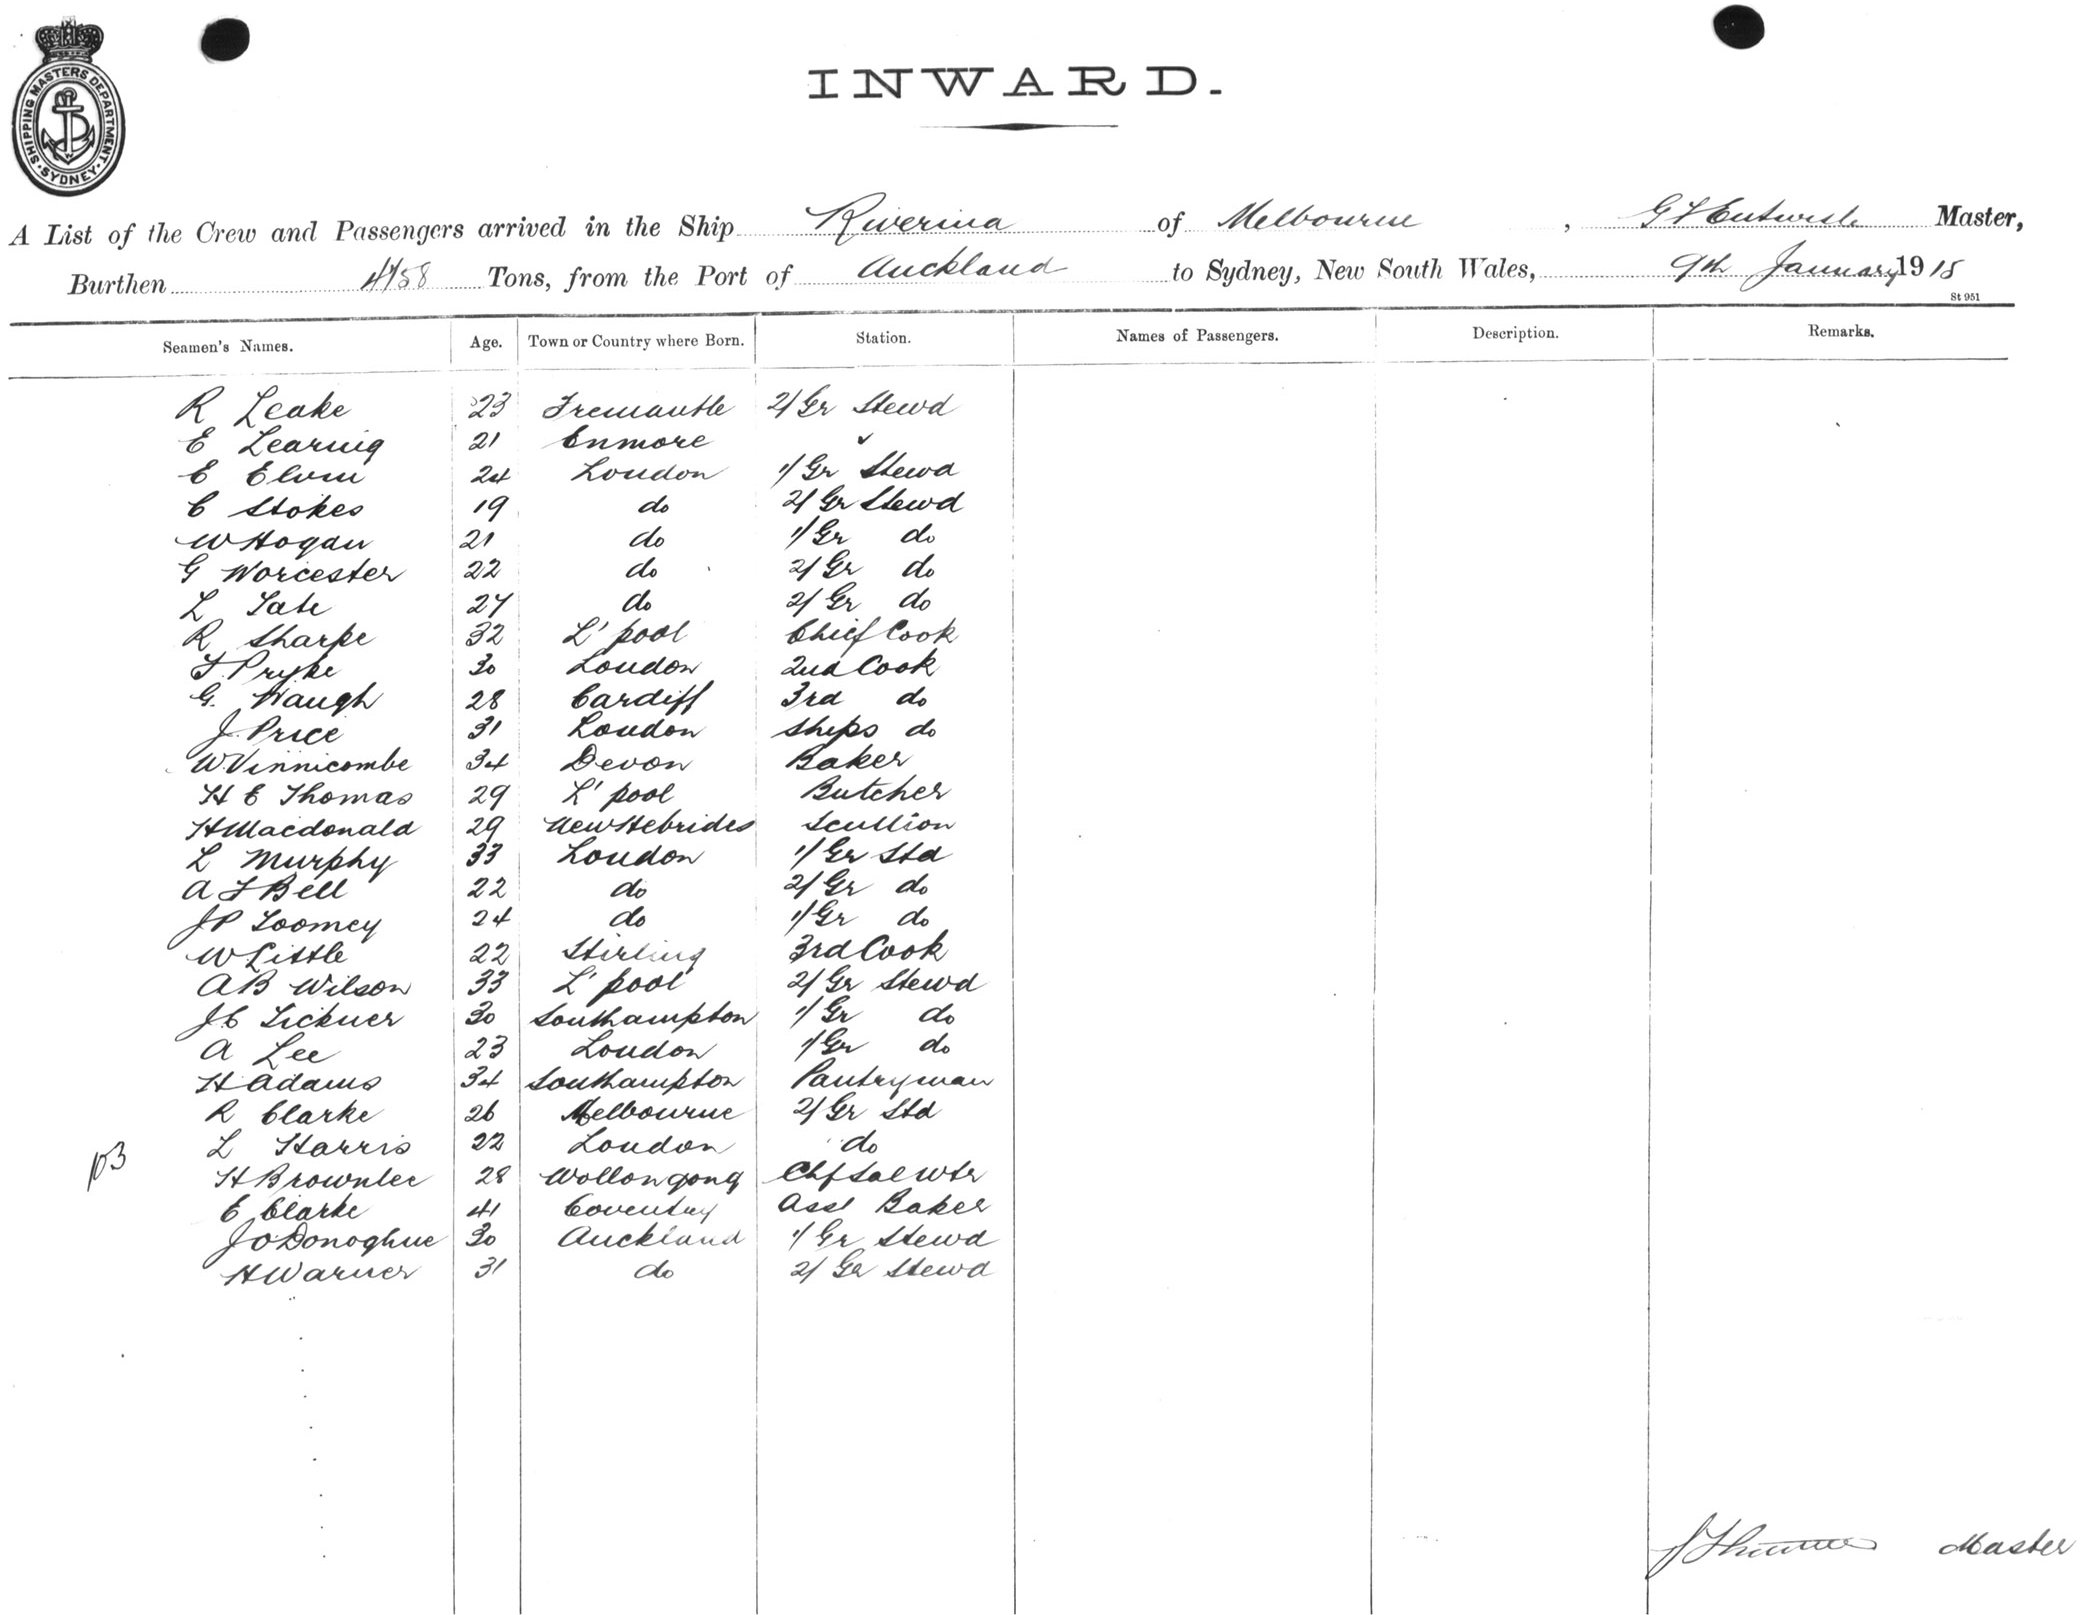 SHIPPING MASTERS DEPARTMENT. SYDNEY
INWARD.
A List of the Crew and Passengers arrived in the Ship Riverina of Melbourne, Master,
Burthen 4758 Tons, from the Port of Auckland to Sydney, New South Wales, 9th January 1918
St 951
Seamen's Names. Age. Town or Country where Born. Station. Names of Passengers. Description. Remarks.
R Leake 23 Fremantle 2/ Gr Stewd
E 21 Enmore "
E 24 London 1/ Gr Stewd
C Stokes 19 do 2/ Gr Stewd
W Hogan 21 do 1/ Gr do
G Worcester 22 do 2/ Gr do
L Tate 27 do 2/ Gr do
R Sharpe 32 L'pool Chief Cook
F. Pryke 30 London 2nd Cook
G. Waugh 28 Cardiff 3rd do
J. Price 31 London Ships do
W. Vinnicombe 34 Devon Baker
H E Thomas 29 L'pool Butcher
H Macdonald 29 New Hebrides Scullion
L Murphy 33 London 1/ Gr Std
A F Bell 22 do 2/ Gr do
J P Toomey 24 do 1/ Gr do
W Little 22 Stirling 3rd Cook
A B Wilson 33 L'pool 2/ Gr Stewd
J C Tickner 30 Southampton 1/ Gr do
A Lee 23 London 1/ Gr do
H Adams 34 Southampton Pantryman
R Clarke 26 Melbourne 2/ Gr Std
L Harris 22 London do
H Brownlee 28 Wollongong Chf Sal Wtr
E Clarke 41 Coventry Asst Baker
J O Donoghue 30 Auckland 1/ Gr Stewd
H Warner 31 do 2/ Gr Stewd
Master